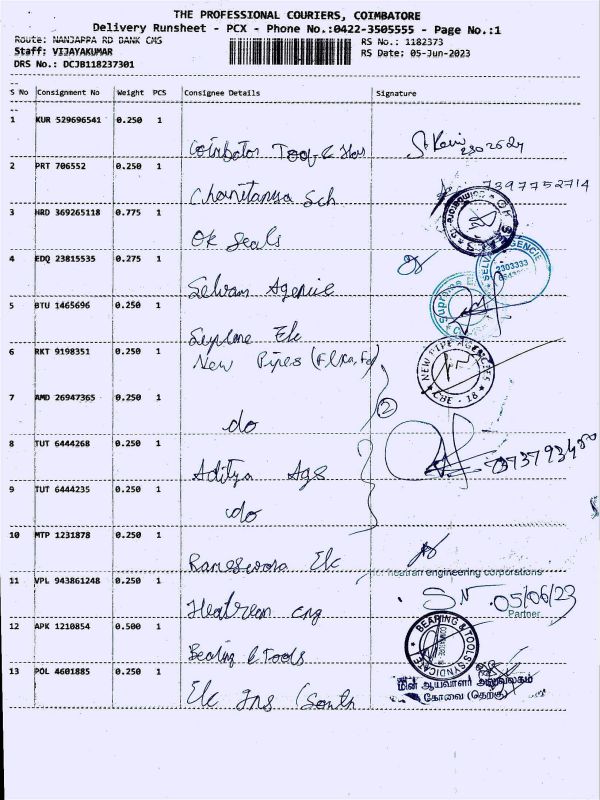 THE PROFESSIONAL COURIERS, COIMBATORE
Delivery Runsheet - PCX - Phone No.:0422-3505555 - Page No.:1
Route: NANJAPPA RD BANK CMS
RS No.: 1182373
Staff: VIJAYAKUMAR
RS Date: 05-Jun-2023
DRS No.: DCJB118237301
S No Consignment No Weight PCS Consignee Details Signature
1 KUR 529696541 0.250 1
Coimbator Tool &
2 PRT 706552 0.250 1
7397752714
Chanitanya Sch
3 HRD 369265118 0.775 1
OK SEALS
OK Seals
4 EDQ 23815535 0.275 1
2303333
Selvam Agencie
5 BTU 1465696 0.250 1
Supreme
6 RKT 9198351 0.250 1
New Pipes
NEW PIPE AGENCIES
CBE - 18
7 AMD 26947365 0.250 1
2
do
8 TUT 6444268 0.250 1
Aditya Ags
9 TUT 6444235 0.250 1
do
10 MTP 1231878 0.250 1
Rameswara Elc
11 VPL 943861248 0.250 1
heatran engineering corporations
05/06/23
Partner
Heatrean eng
12 APK 1210854 0.500 1
BEARING & TOOLS SYNDICATE
Bearing & Tools
13 POL 4601885 0.250 1
மின் ஆய்வாளர் அலுவலகம்
கோவை (தெற்கு)
Elc Ins (South